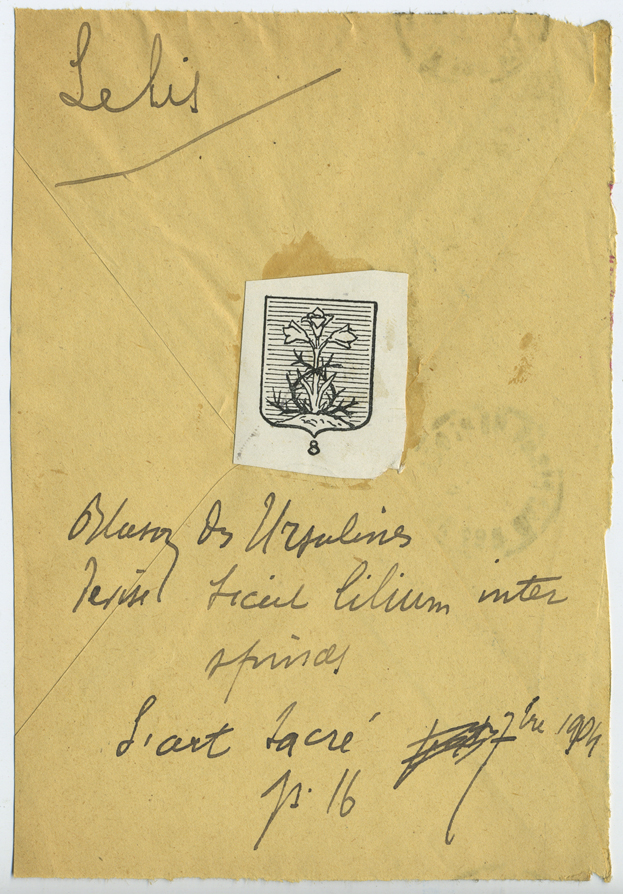 Le lis
8
Blason des Ursulines
Devise Sicut lilium inter
spinas
L'art sacré 7bre 1904
p. 16